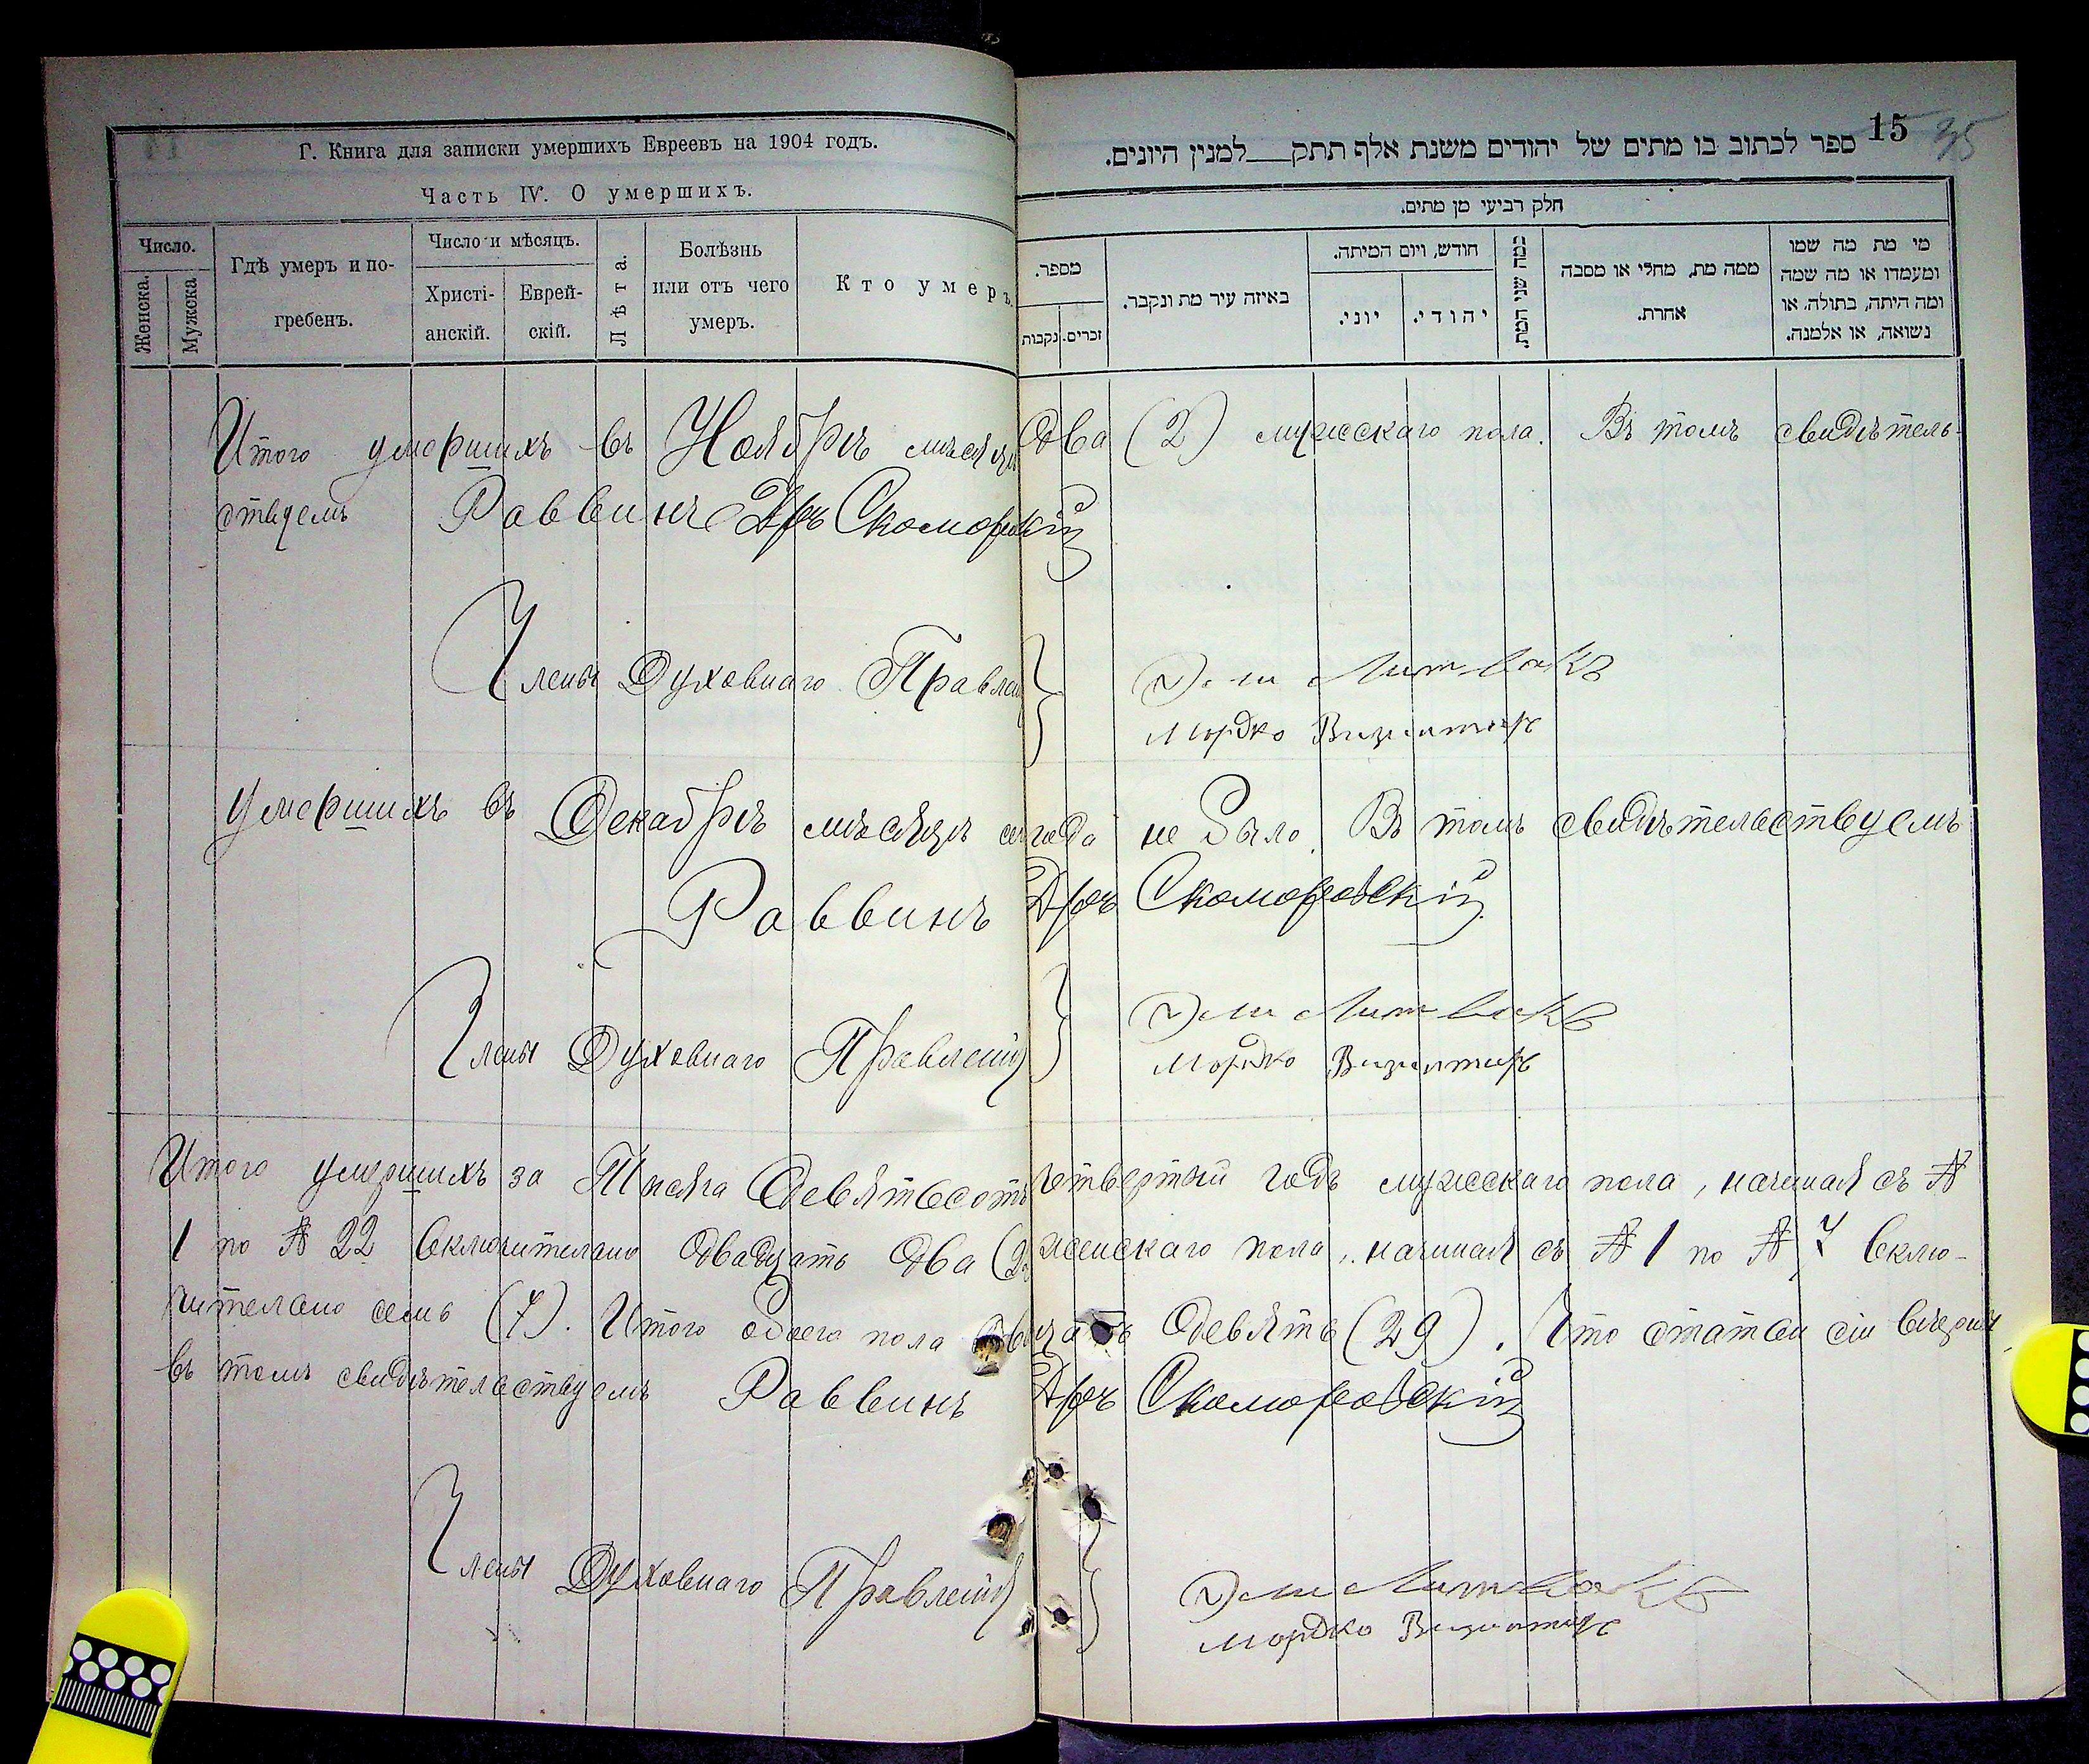 Г. Книга для записки умершихъ Евреевъ на 1904 годъ.
Часть IV. О умершихъ.
Число.
Женска.
Мужска
Гдѣ умеръ и по-
гребенъ.
Число и мѣсяцъ.
Христі-
анскій.
Еврей-
скій.
Лѣта.
Болѣзнь
или отъ чего
умеръ.
Кто умеръ.
15
35
ספר לכתוב בו מתים של יהודים משנת אלף תתק___למנין היונים.
חלק רביעי מן מתים.
מספר.
נקבות
זכרים.
באיזה עיר מת ונקבר.
חודש, ויום המיתה.
יוני.
יהודי.
כמה שני המת.
ממה מת, מחלי או מסבה
אחרת.
מי מת מה שמו
ומעמדו או מה שמה
ומה היתה, בתולה, או
נשואה, או אלמנה.
Итого умершихъ въ Ноябрѣ мѣсяцѣ два (2) мужскаго пола. Въ томъ свидѣтель-
ствуемъ Раввинъ Д-ръ Скоморовскій
Члены Духовнаго Правлен } Литвакъ
Мордко Визинтиръ
Умершихъ въ Декабрѣ мѣсяцѣ сего года не было. Въ томъ свидѣтельствуемъ
Раввинъ Д-ръ Скоморовскій
Члены Духовнаго Правленія } Литвакъ
Мордко Визинтиръ
Итого умершихъ за Тысяча девятьсотъ четвертый годъ мужскаго пола, начиная съ №
1 по № 22 включительно двадцать два (22 женскаго пола, начиная съ № 1 по № 7 вклю-
чительно семь (7). Итого обоего пола двадцать девять (29). Что статьи сіи вѣрны
въ томъ свидѣтельствуемъ Раввинъ Д-ръ Скоморовскій
Члены Духовнаго Правленія } Литвакъ
Мордко Визинтиръ